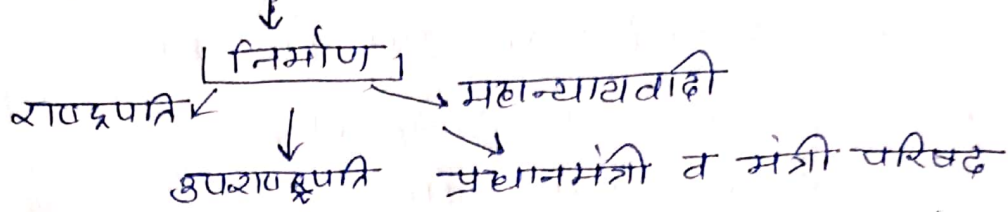 निर्माण
राष्ट्रपति महान्यायवादी
उपराष्ट्रपति प्रधानमंत्री व मंत्री परिषद